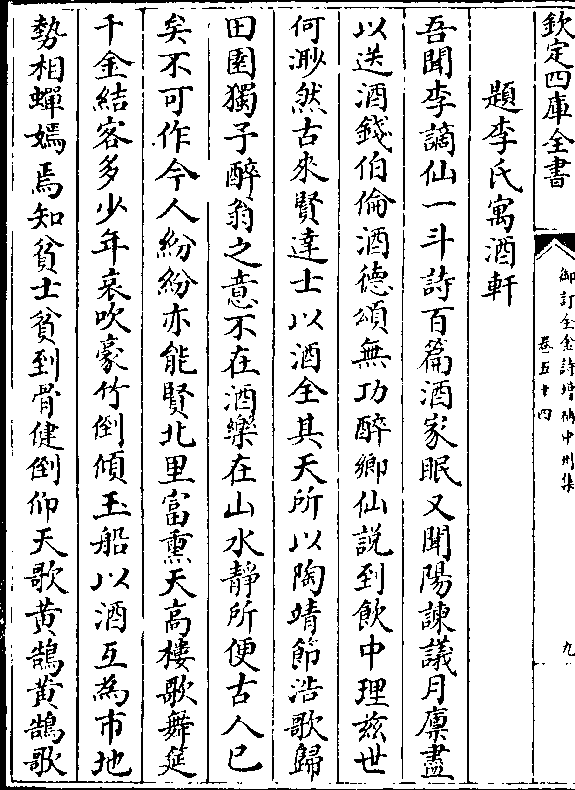 欽定四庫全書
御訂全金詩增補中州集
卷五十四
九
題李氏寓酒軒
吾聞李謫仙一斗詩百篇酒家眠又聞陽諫議月廩盡
以送酒錢伯倫酒德頌無功醉鄉仙説到飲中理兹世
何渺然古來賢達士以酒全其天所以陶靖節浩歌歸
田園獨予醉翁之意不在酒樂在山水靜所便古人已
矣不可作今人紛紛亦能賢北里富熏天高樓歌舞筵
千金結客多少年哀吹豪竹倒傾玉船以酒互為市地
勢相蟬嫣焉知貧士貧到骨健倒仰天歌黄鵠黄鵠歌